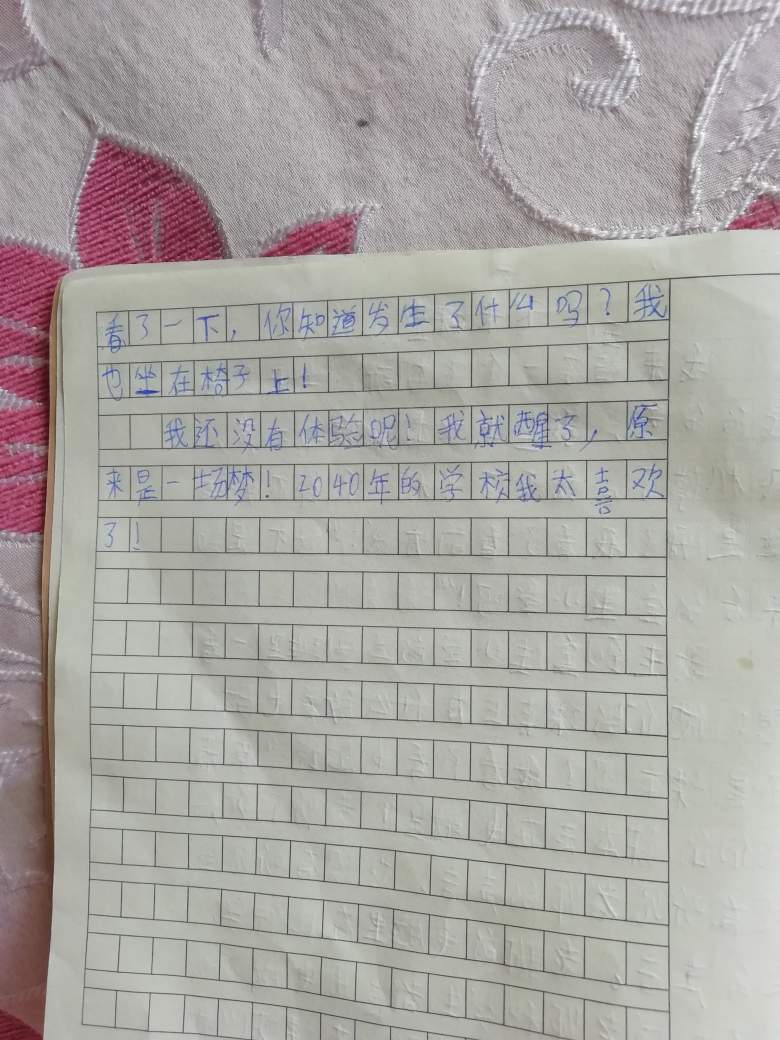 看了一下，你知道发生了什么吗？我
也坐在椅子上！
我还没有体验呢！我就醒了，原
来是一场梦！2040年的学校我太喜欢
了！